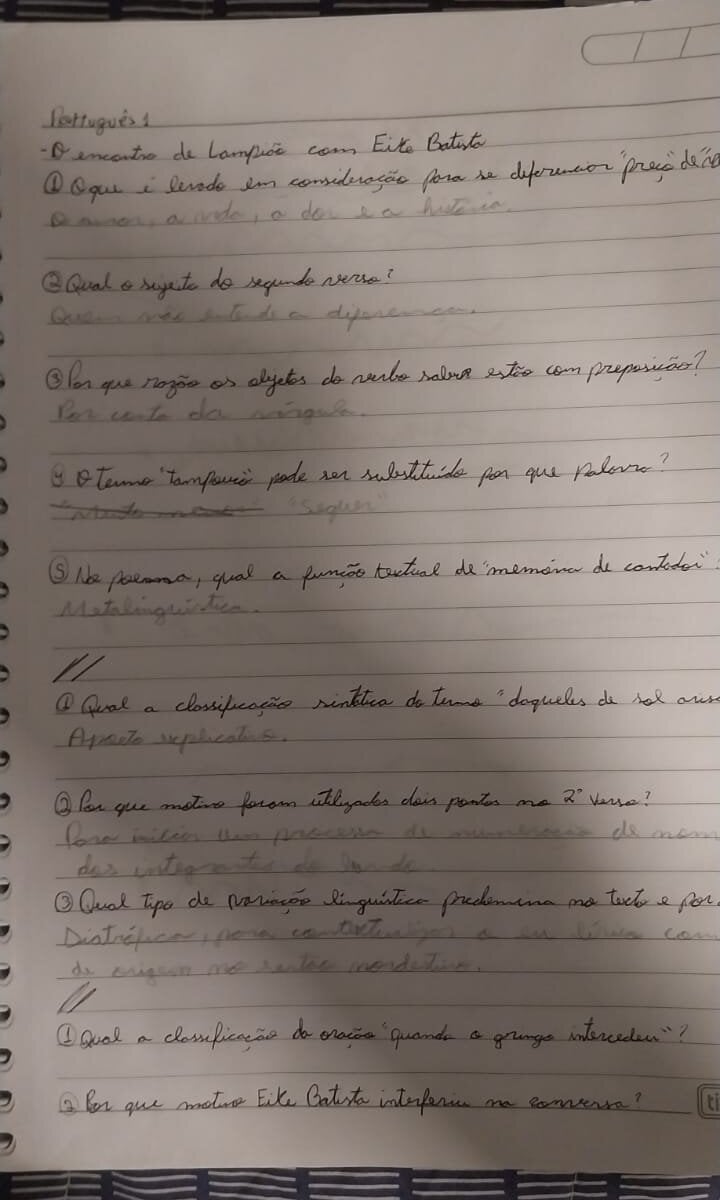 Português 1
- O encontro de Lampião com Eike Batista
① O que é levado em consideração para se diferenciar "preço" de "
O amor, a vida, a dor e a história.
② Qual o sujeito do segundo verso?
Quem não entende a diferença.
③ Por que razão os objetos do verbo saber estão com preposição?
Por conta da vírgula.
4 O termo "tampouco" pode ser substituído por que palavra?
"Sequer"
⑤ No poema, qual a função textual de "memória de contador"
Metalinguística.
//
① Qual a classificação sintática do termo "daqueles de sol
Aposto explicativo.
② Por que motivo foram utilizados dois pontos no 2° verso?
Para iniciar um processo de numeração de nom
dos integrantes do bando.
③ Qual tipo de variação linguística predomina no texto e por
Diatrópica, para contextualizar o eu lírico com
de origem no sertão nordestino.
//
① Qual a classificação da oração "quando o gringo intercedeu"?
② Por que motivo Eike Batista interferiu na conversa?
ti